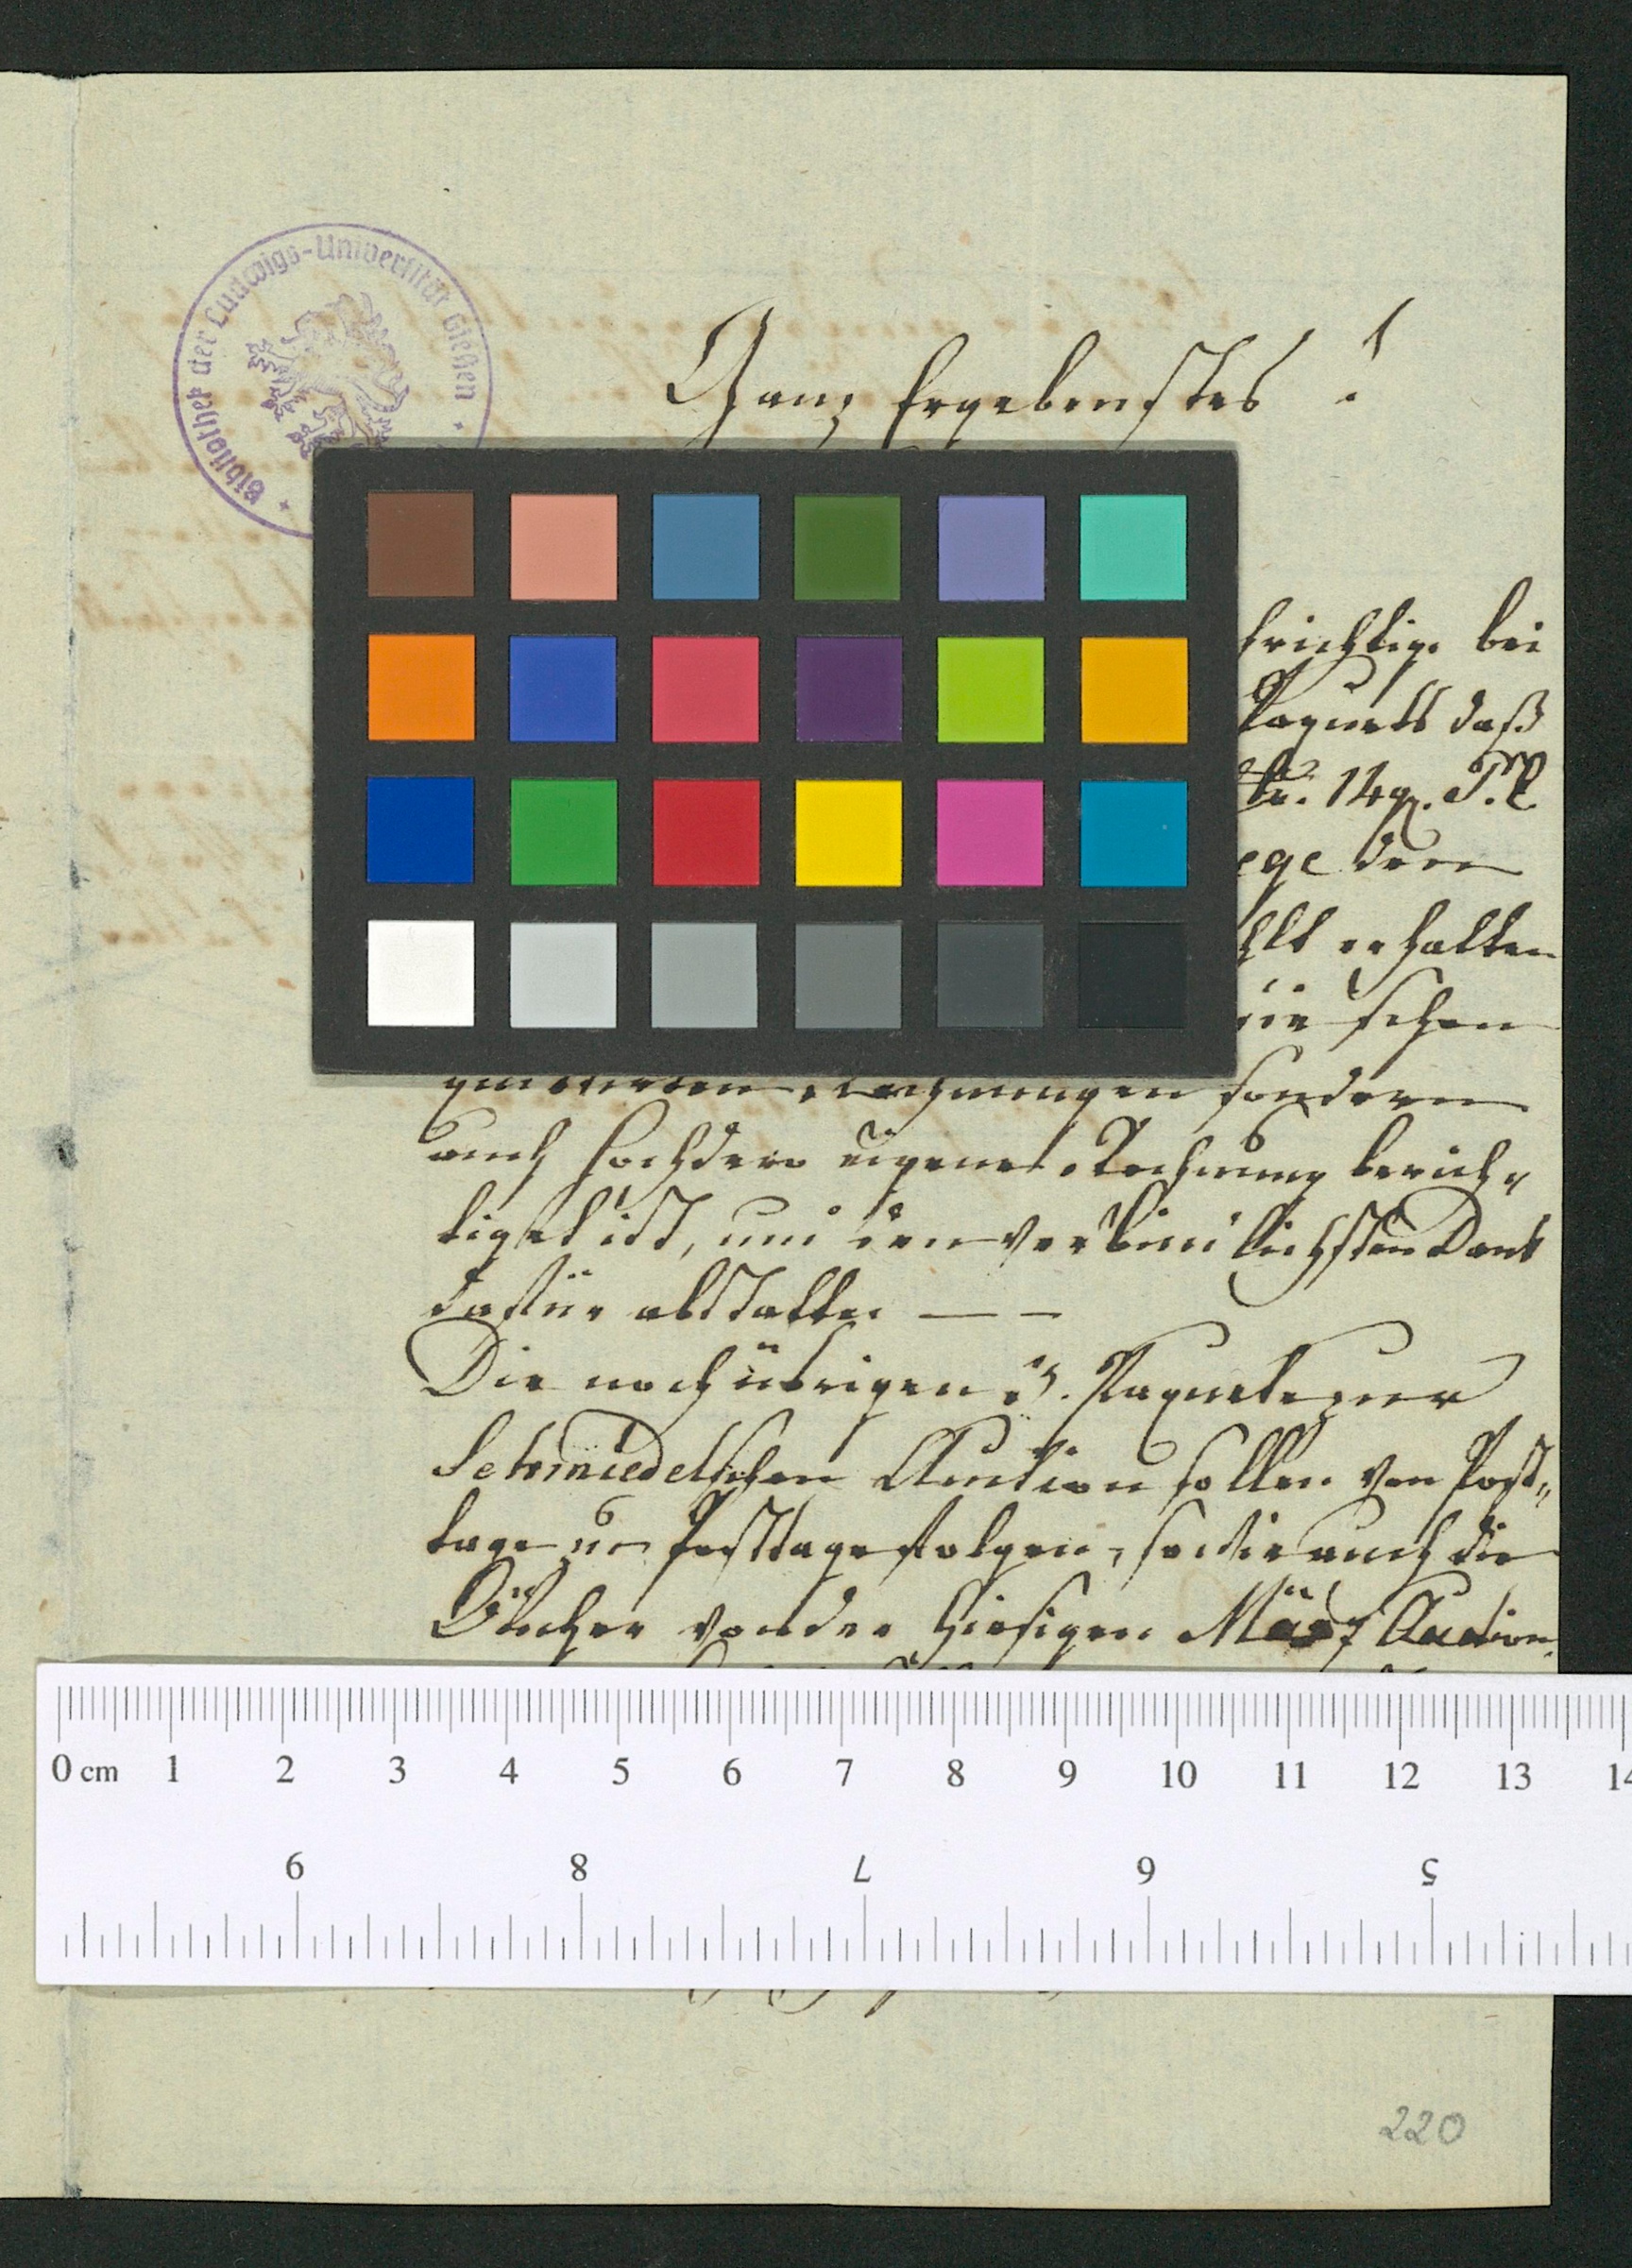 Bibliothek der Ludwigs-Universität Gießen
Ganz Ergebenstes!
richtige bei
Paquets daß
14 gr. P. C
ege dem
hlt erhalten
schon
quittirten Rechnungen sondern
auch Hochdero eigene Rechnung berich„
tiget ist, und den verbindlichsten Dank
dafür abstatte. — —
Die noch übrigen 3. Paquete zur
Schmiedelschen Auction sollen von Post„
tage zu Posttage folgen, so wie auch die
Bücher von der hiesigen März Auction.
0 cm 1 2 3 4 5 6 7 8 9 10 11 12 13 14
9 8 7 6 5
220